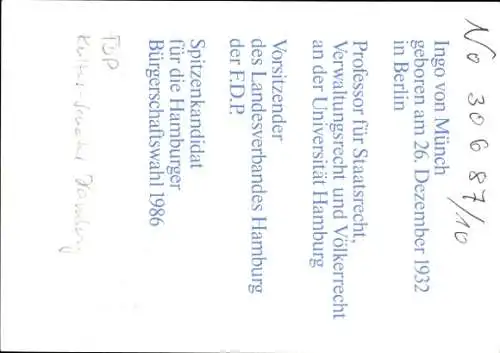 No 30687/10
Ingo von Münch
geboren am 26. Dezember 1932
in Berlin
Professor für Staatsrecht,
Verwaltungsrecht und Völkerrecht
an der Universität Hamburg
Vorsitzender
des Landesverbandes Hamburg
der F.D.P.
Spitzenkandidat
für die Hamburger
Bürgerschaftswahl 1986
FDP
Hamburg